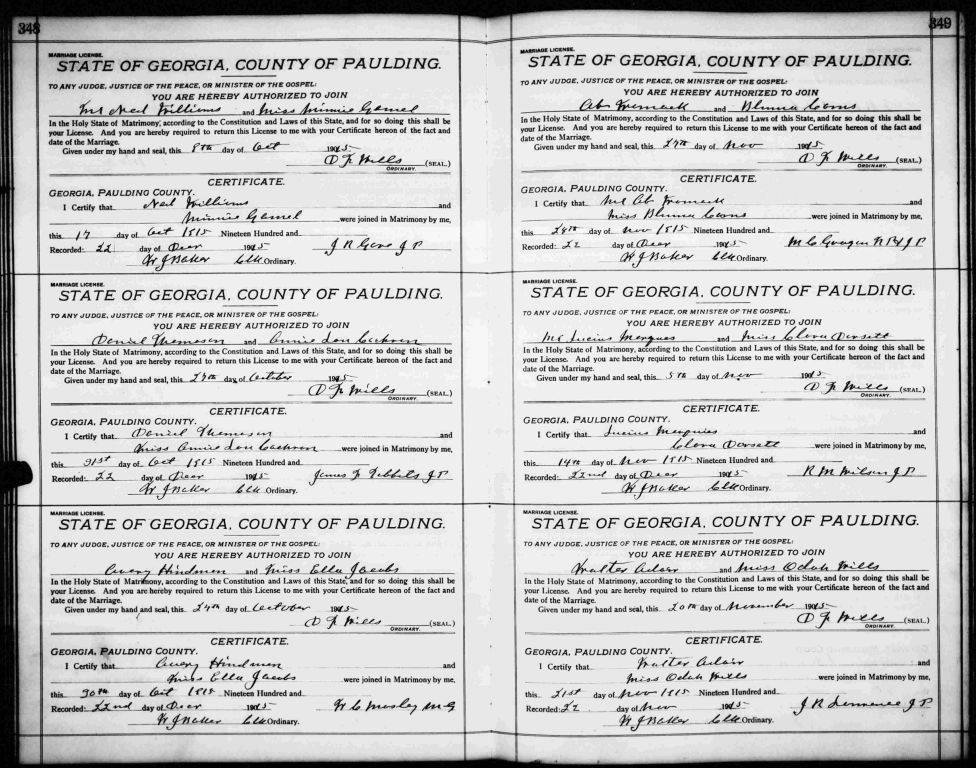 348
MARRIAGE LICENSE.
STATE OF GEORGIA, COUNTY OF PAULDING.
TO ANY JUDGE, JUSTICE OF THE PEACE, OR MINISTER OF THE GOSPEL:
YOU ARE HEREBY AUTHORIZED TO JOIN
Mr Neil Williams and Miss Minnie Gamel
In the Holy State of Matrimony, according to the Constitution and Laws of this State, and for so doing this shall be
your License. And you are hereby required to return this License to me with your Certificate hereon of the fact and
date of the Marriage.
Given under my hand and seal, this 8th day of Oct 1915
D F Wills (SEAL.)
ORDINARY.
CERTIFICATE.
GEORGIA, PAULDING COUNTY.
I Certify that Neil Williams and
Minnie Gamel were joined in Matrimony by me,
this 17 day of Oct 1915 Nineteen Hundred and
Recorded: 22 day of Decr 1915 J R Gore J P
W J Baker Clk Ordinary.
MARRIAGE LICENSE.
STATE OF GEORGIA, COUNTY OF PAULDING.
TO ANY JUDGE, JUSTICE OF THE PEACE, OR MINISTER OF THE GOSPEL:
YOU ARE HEREBY AUTHORIZED TO JOIN
Daniel Thomason and Annie Lou Cochran
In the Holy State of Matrimony, according to the Constitution and Laws of this State, and for so doing this shall be
your License. And you are hereby required to return this License to me with your Certificate hereon of the fact and
date of the Marriage.
Given under my hand and seal, this 29th day of October 1915
D F Wills (SEAL.)
ORDINARY.
CERTIFICATE.
GEORGIA, PAULDING COUNTY.
I Certify that Daniel Thomason and
Miss Annie Lou Cochran were joined in Matrimony by me,
this 31st day of Oct 1915 Nineteen Hundred and
Recorded: 22 day of Decr 1915 James F Tibbits J P
W J Baker Clk Ordinary.
MARRIAGE LICENSE.
STATE OF GEORGIA, COUNTY OF PAULDING.
TO ANY JUDGE, JUSTICE OF THE PEACE, OR MINISTER OF THE GOSPEL:
YOU ARE HEREBY AUTHORIZED TO JOIN
Avery Hindmen and Miss Ella Jacobs
In the Holy State of Matrimony, according to the Constitution and Laws of this State, and for so doing this shall be
your License. And you are hereby required to return this License to me with your Certificate hereon of the fact and
date of the Marriage.
Given under my hand and seal, this 29th day of October 1915
D F Wills (SEAL.)
ORDINARY.
CERTIFICATE.
GEORGIA, PAULDING COUNTY.
I Certify that Avery Hindmen and
Miss Ella Jacobs were joined in Matrimony by me,
this 30th day of Oct 1915 Nineteen Hundred and
Recorded: 22nd day of Decr 1915 W C Mosley M G
W J Baker Clk Ordinary.
349
MARRIAGE LICENSE.
STATE OF GEORGIA, COUNTY OF PAULDING.
TO ANY JUDGE, JUSTICE OF THE PEACE, OR MINISTER OF THE GOSPEL:
YOU ARE HEREBY AUTHORIZED TO JOIN
Ab Womack and
In the Holy State of Matrimony, according to the Constitution and Laws of this State, and for so doing this shall be
your License. And you are hereby required to return this License to me with your Certificate hereon of the fact and
date of the Marriage.
Given under my hand and seal, this 27th day of Nov 1915
D F Wills (SEAL.)
ORDINARY.
CERTIFICATE.
GEORGIA, PAULDING COUNTY.
I Certify that Mr Ab Womack and
Miss were joined in Matrimony by me,
this 28th day of Nov 1915 Nineteen Hundred and
Recorded: 22 day of Decr 1915 M C J P
W J Baker Clk Ordinary.
MARRIAGE LICENSE.
STATE OF GEORGIA, COUNTY OF PAULDING.
TO ANY JUDGE, JUSTICE OF THE PEACE, OR MINISTER OF THE GOSPEL:
YOU ARE HEREBY AUTHORIZED TO JOIN
Mr Lucius Marques and Miss Clora Dorsett
In the Holy State of Matrimony, according to the Constitution and Laws of this State, and for so doing this shall be
your License. And you are hereby required to return this License to me with your Certificate hereon of the fact and
date of the Marriage.
Given under my hand and seal, this 5th day of Nov 1915
D F Wills (SEAL.)
ORDINARY.
CERTIFICATE.
GEORGIA, PAULDING COUNTY.
I Certify that Lucius Marquies and
Clora Dorsett were joined in Matrimony by me,
this 14th day of Nov 1915 Nineteen Hundred and
Recorded: 22nd day of Decr 1915 R M Wilson J P
W J Baker Clk Ordinary.
MARRIAGE LICENSE.
STATE OF GEORGIA, COUNTY OF PAULDING.
TO ANY JUDGE, JUSTICE OF THE PEACE, OR MINISTER OF THE GOSPEL:
YOU ARE HEREBY AUTHORIZED TO JOIN
Walter Adair and Miss Odah Wills
In the Holy State of Matrimony, according to the Constitution and Laws of this State, and for so doing this shall be
your License. And you are hereby required to return this License to me with your Certificate hereon of the fact and
date of the Marriage.
Given under my hand and seal, this 20th day of November 1915
D F Wills (SEAL.)
ORDINARY.
CERTIFICATE.
GEORGIA, PAULDING COUNTY.
I Certify that Walter Adair and
Miss Odah Wills were joined in Matrimony by me,
this 21st day of Nov 1915 Nineteen Hundred and
Recorded: 22 day of Nov 1915 J R J P
W J Baker Clk Ordinary.